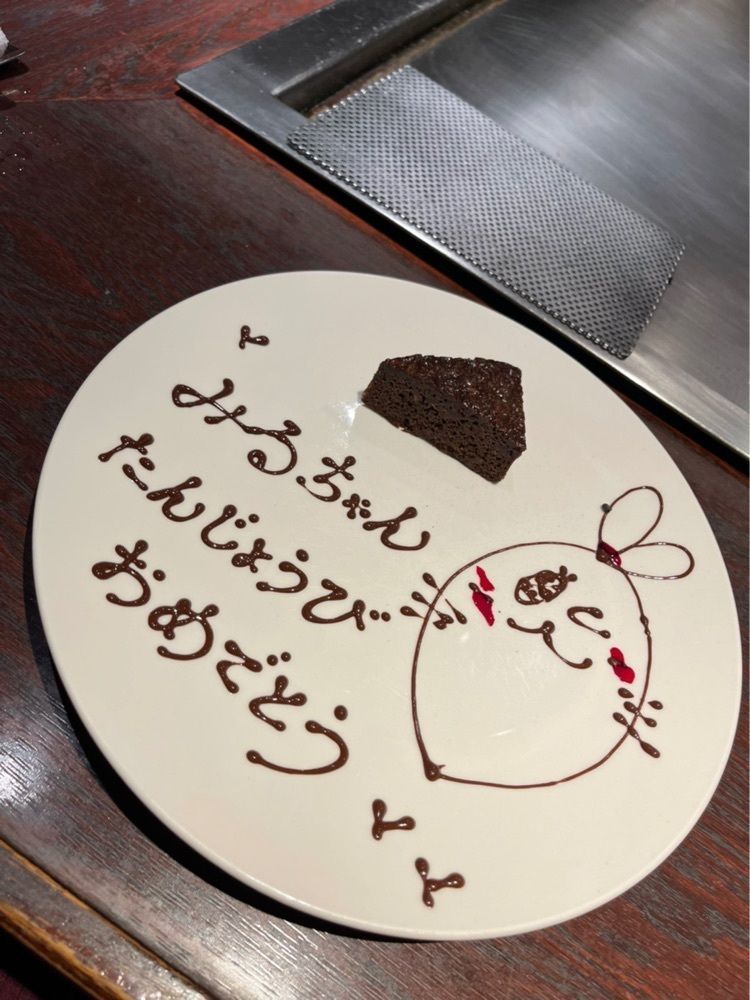 みるちゃん
たんじょうび
おめでとう